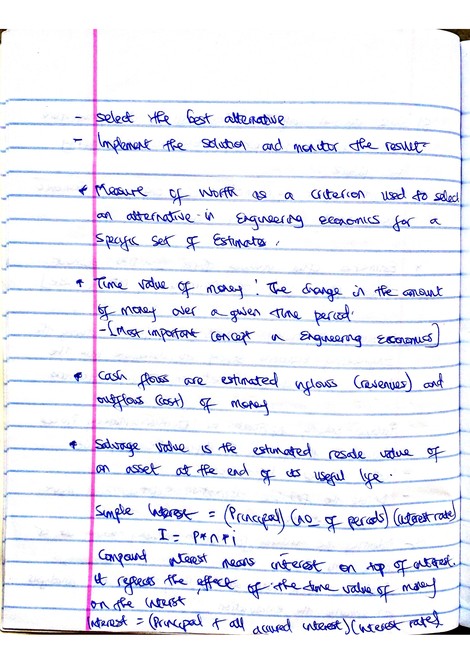 - Select the best alternative
- Implement the solution and monitor the result.
* Measure of worth as a criterion used to select
an alternative in Engineering Economics for a
specific set of Estimates.
* Time value of money: The change in the amount
of money over a given time period.
-[most important concept in Engineering Economics]
* Cash flows are estimated inflows (revenues) and
outflows (cost) of money
* Salvage value is the estimated resale value of
an asset at the end of its useful life.
Simple interest = (Principal) (no_ of periods) (interest rate)
I = P*n*i
Compound interest means interest on top of interest.
It reflects the effect of the time value of money
on the interest
Interest = (Principal + all accured interest) (interest rate)